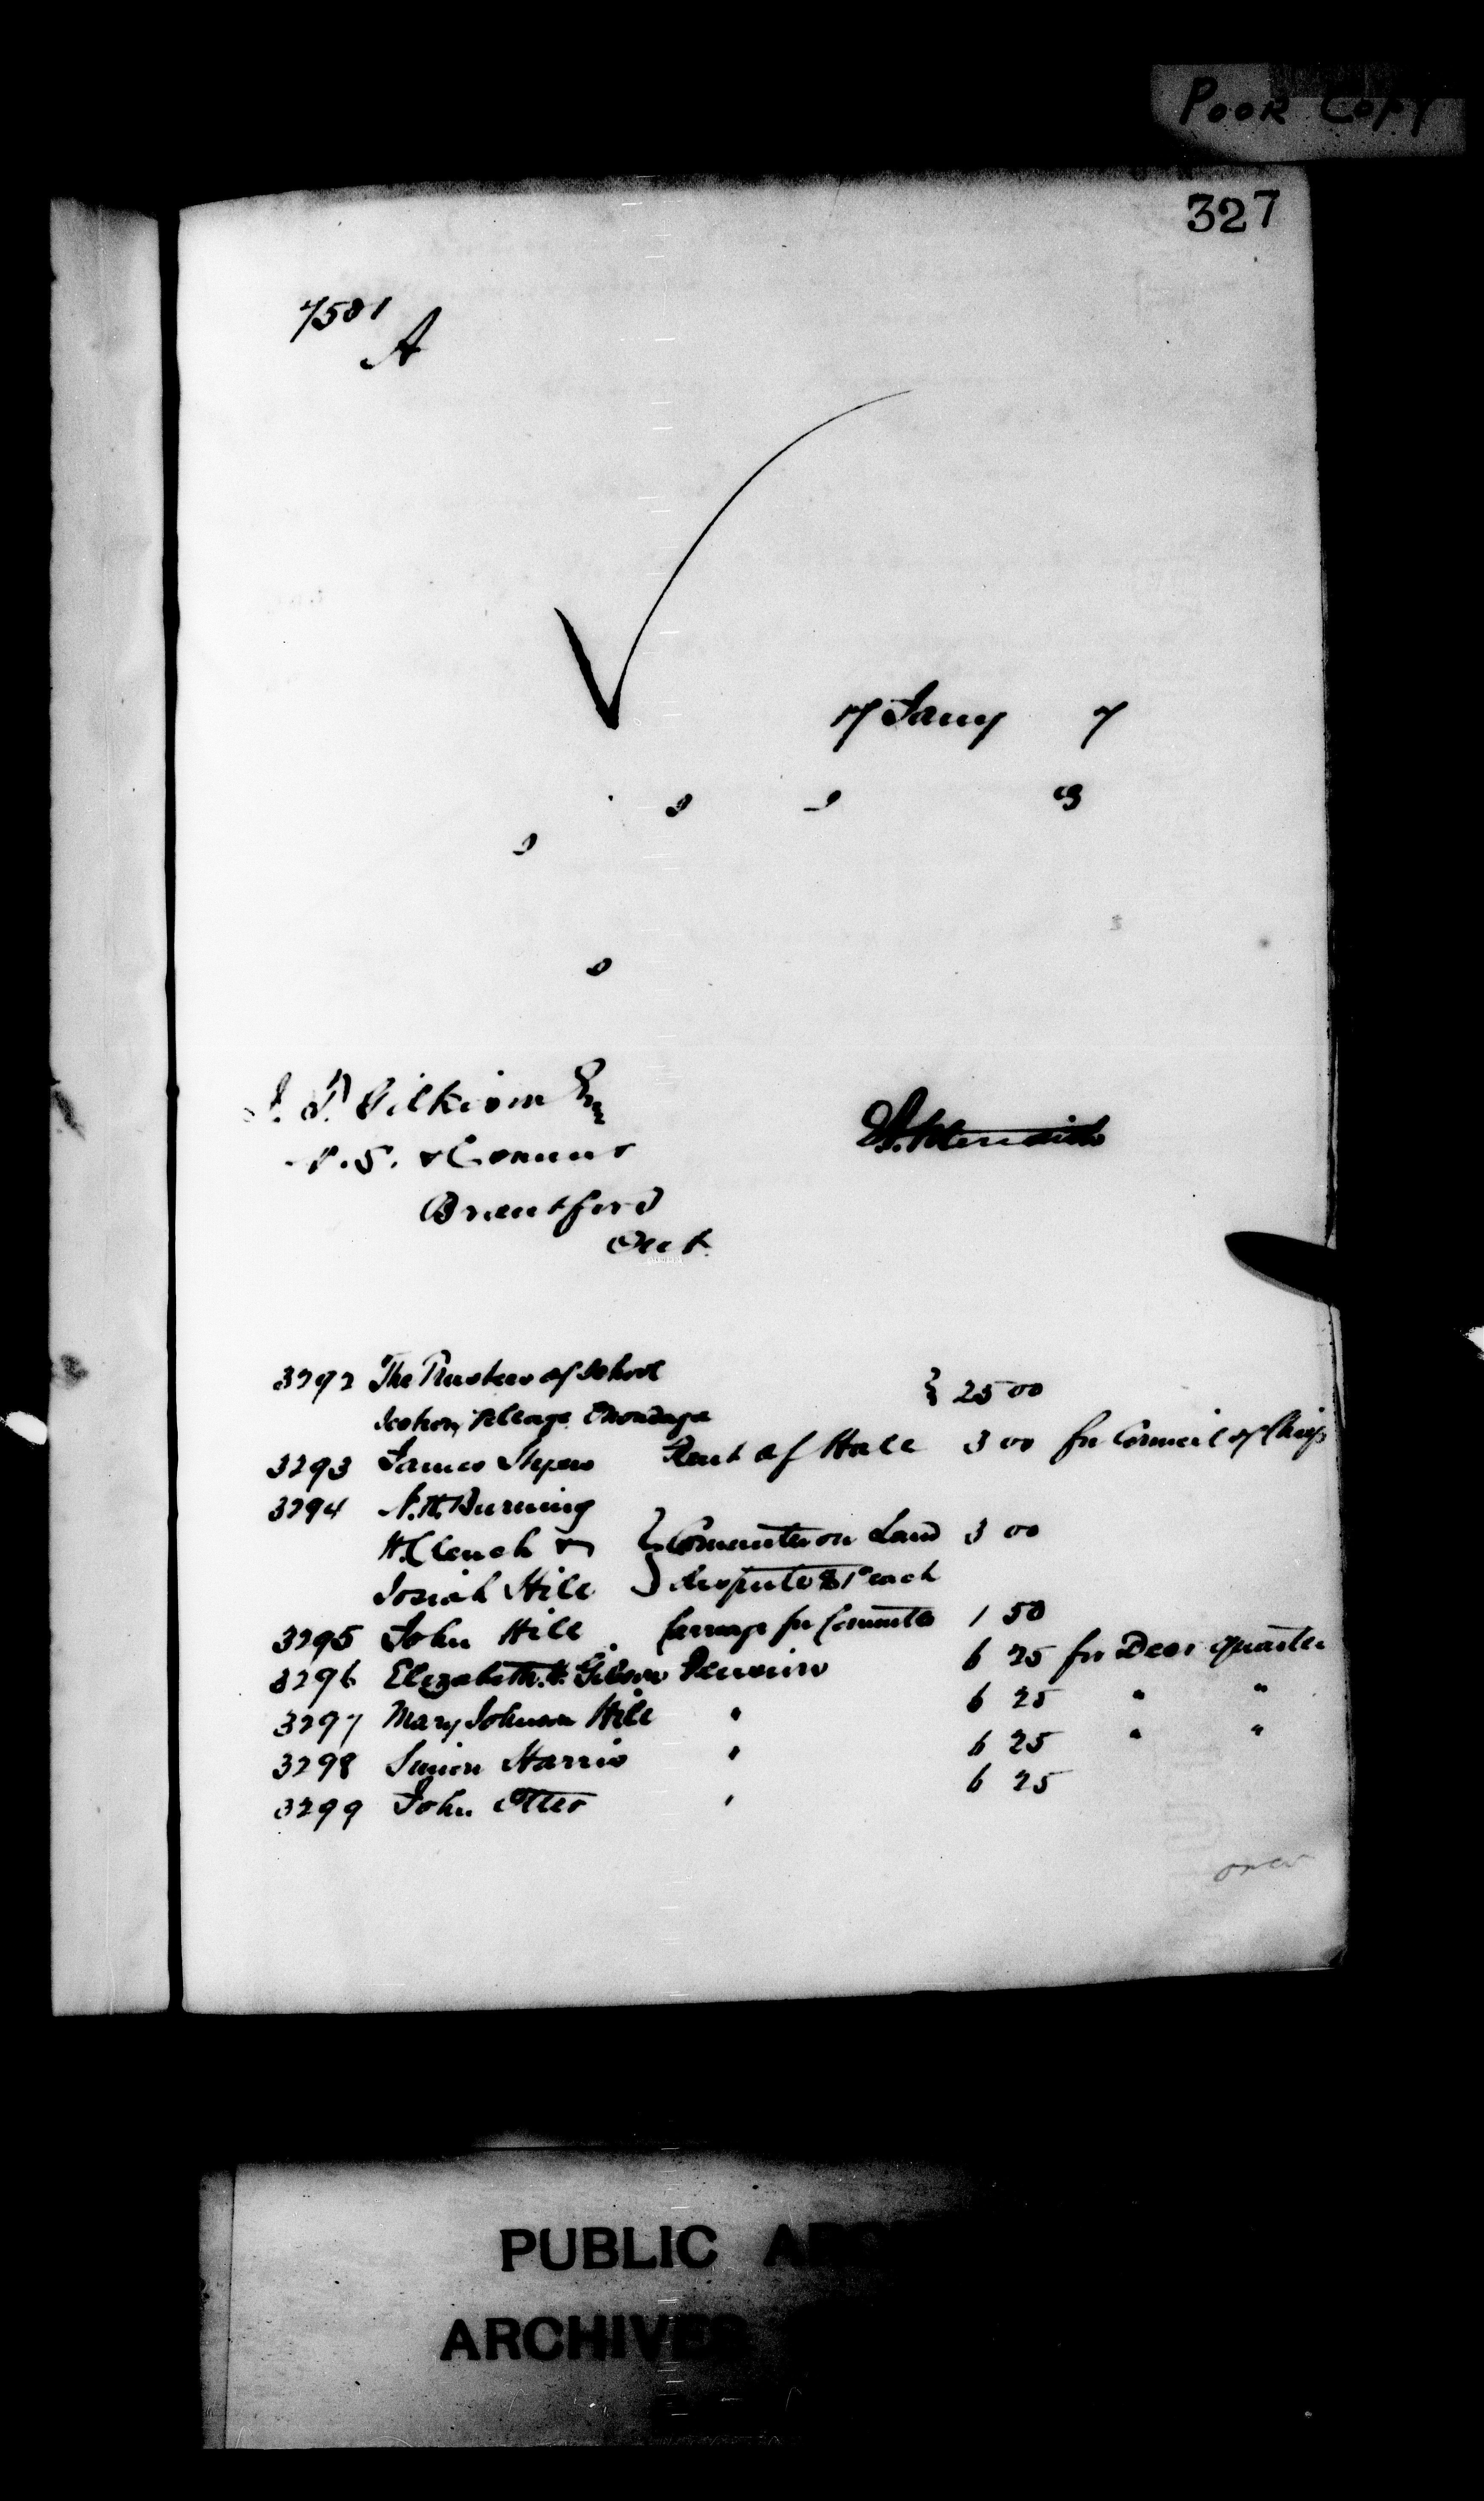 POOR COPY
327
7581
A
17 Jany 7
J. T. Gilkison Esq
V.S. & Commr
Brantford
Ont.
3292 The Trustees of School } 25 00
Section, Village Onondaga
3293 James Styres Rent of Hall 3 00 for Council of Chiefs
3294 N. H. Burning
H. Clench & } Committee on Land 3 00
Josiah Hill } disputes $1 each
3295 John Hill Carriage for Committee 1 50
3296 Elizabeth H. Gibson Pension 6 25 for Decr quarter
3297 Mary Johnson Hill " 6 25 " "
3298 Simon Harris " 6 25 " "
3299 John Otter " 6 25
over
PUBLIC
ARCHIVES